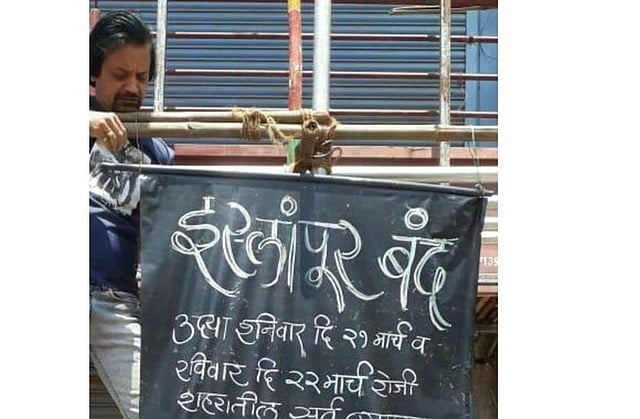 इस्लांपूर बंद
उद्या शनिवार दि २१ मार्च व
रविवार दि २२ मार्च रोजी
शहरातील सर्व